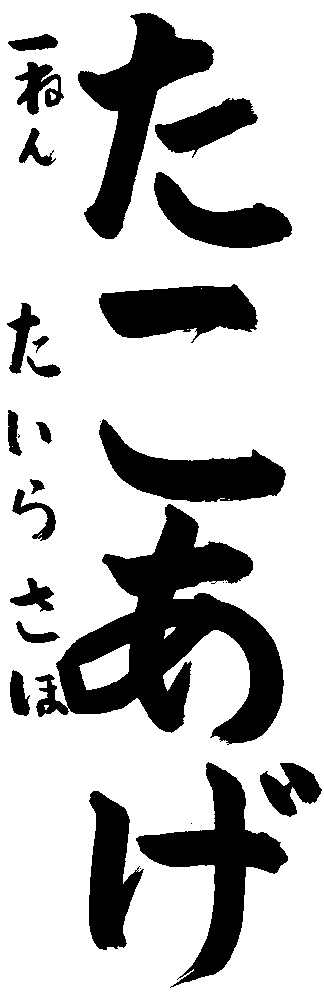 たこあげ
一ねん たいらさほ